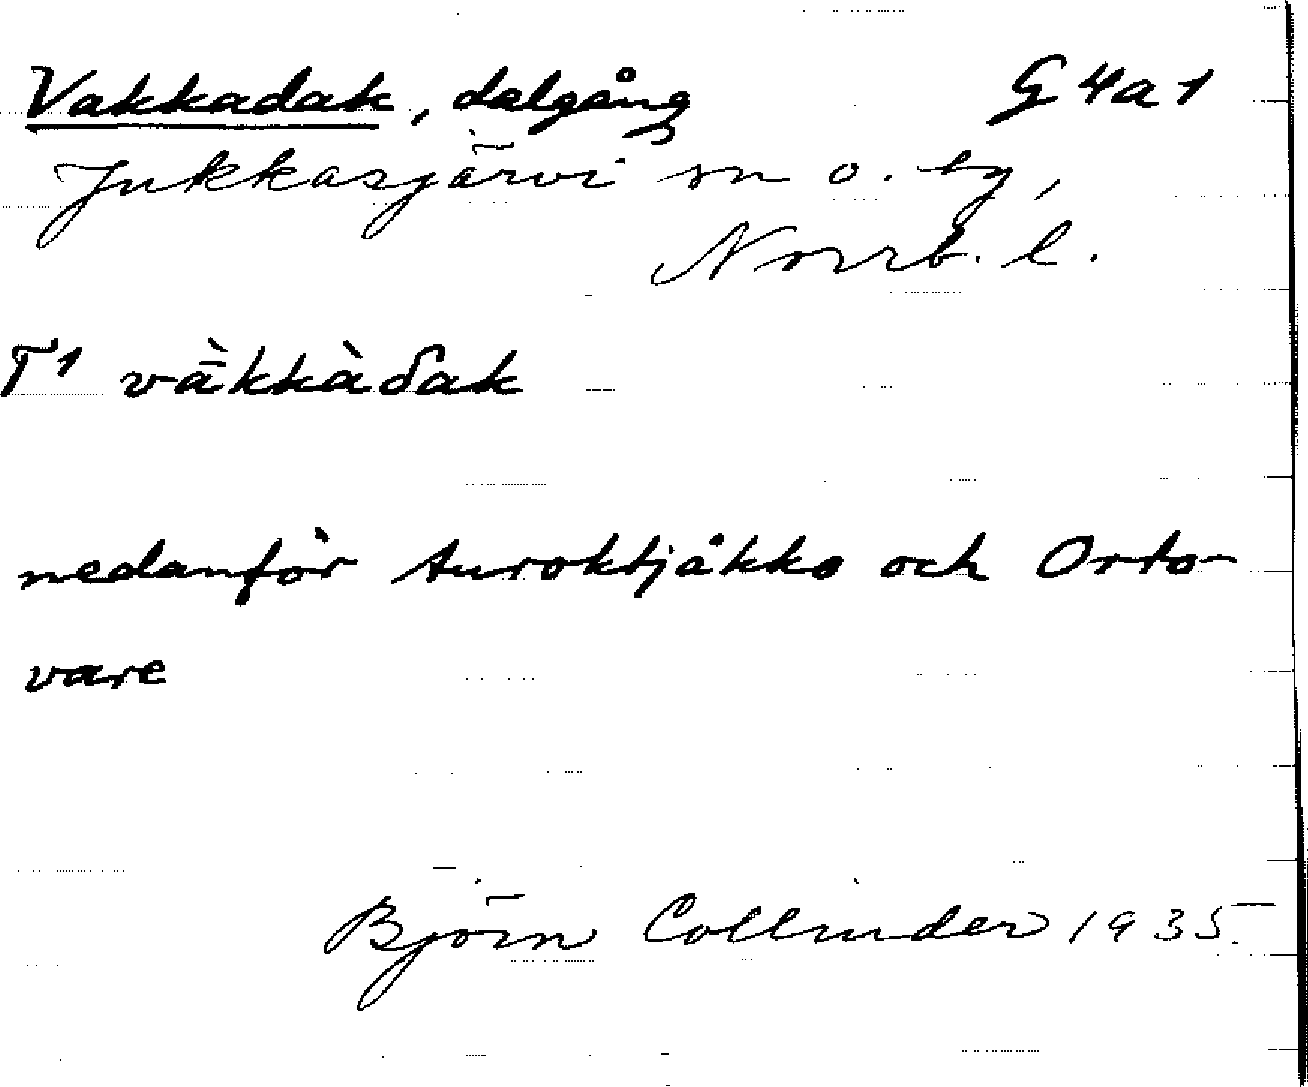 Vakkadak, dalgång G4a1
Jukkasjärvi sn o. by,
Norrb. l.
T1 và̄kkàδak
nedanför Auroktjåkko och Orto-
vare
Björn Collinder 1935